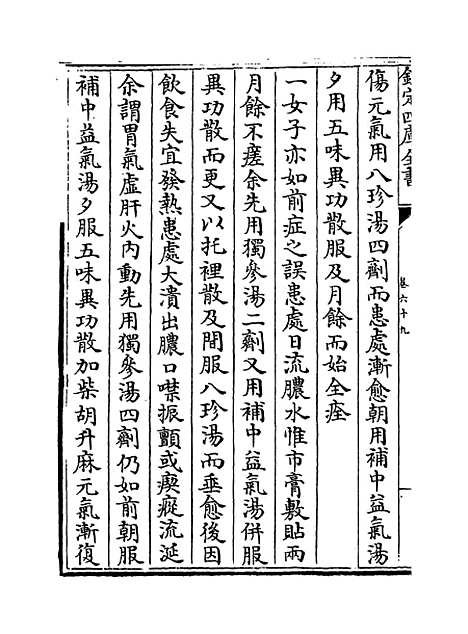 欽定四庫全書
卷六十九
傷元氣用八珍湯四劑而患處漸愈朝用補中益氣湯
夕用五味異功散服及月餘而始全痊
一女子亦如前症之誤患處日流膿水惟市膏敷貼兩
月餘不瘥余先用獨參湯二劑又用補中益氣湯併服
異功散而更又以托裡散及間服八珍湯而垂愈後因
飲食失宜發熱患處大潰出膿口噤振顫或瘈瘲流涎
余謂胃氣虛肝火內動先用獨參湯四劑仍如前朝服
補中益氣湯夕服五味異功散加柴胡升麻元氣漸復